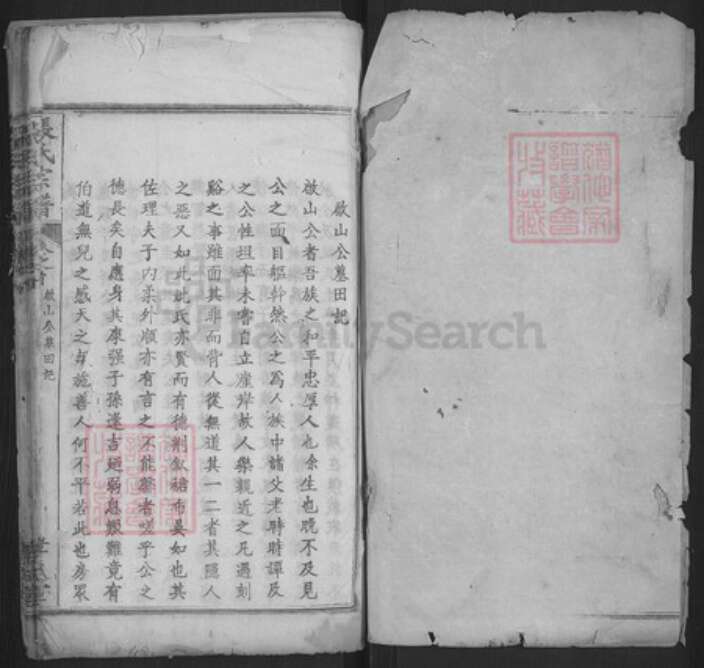 啟山公墓田記
啟山公者吾族之和平忠厚人也余生也晚不及見
公之面目軀幹然公之為人族中諸父老時時譚及
之公性坦率未嘗自立崖岸故人樂親近之凡遇刻
谿之事雖面其非而背人從無道其一二者其隱人
之惡又如此妣氏亦賢而有德荊釵裙布晏如也其
佐理夫子內柔外順亦有言之不能罄者嗟乎公之
德長矣自應身其康强子孫逢吉乃弱息艱難竟有
伯道無兒之感天之報施善人何不平若此也房眾
張氏宗譜
卷之首
啟山公墓田記
FamilySearch